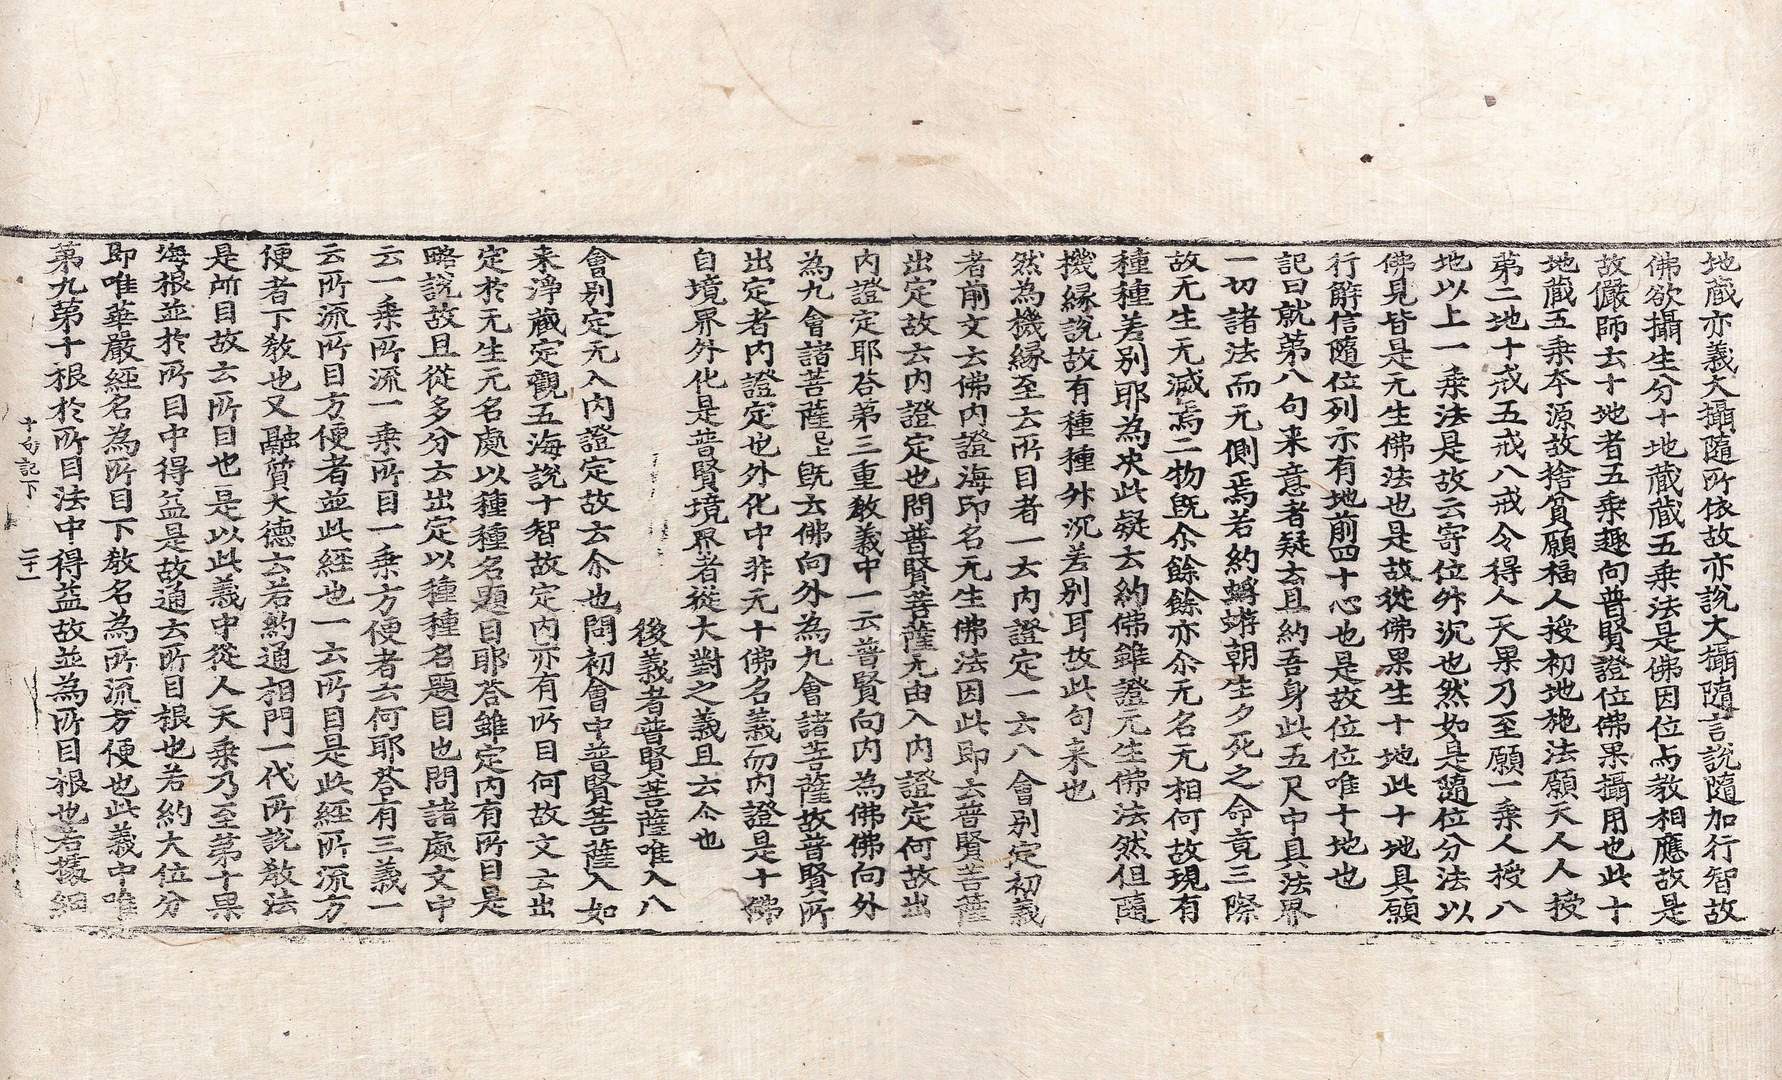 地藏亦義大攝隨所依故亦說大攝隨言說隨加行智故
佛欲攝生分十地藏藏五乘法是佛因位与教相應故是
故儼師去十地者五乘趣向普賢證位佛果攝用也此十
地藏五乘夲源故捨貧願福人授初地施法願天人人授
苐二地十戒五戒八戒令得人天果乃至願一乘人授八
地以上一乘法是故云寄位升沉也然如是隨位分法以
佛見皆是无生佛法也是故從佛果生十地此十地具願
行解信隨位列示有地前四十心也是故位位唯十地也
記曰就苐八句来意者疑去且約吾身此五尺中具法界
一切諸法而无側焉若約蟭蟟朝生夕死之命竟三際
故无生无滅焉二物旣尒餘餘亦尒无名无相何故現有
種種差別耶為决此疑去約佛雖證无生佛法然但隨
機緣說故有種種升沉差別耳故此句来也
然為機緣至去所目者一去內證定一去八會別定初義
者前文去佛內證海印名无生佛法因此即去普賢菩薩
出定故去内證定也問普賢菩薩无由入內證定何故出
內證定耶荅苐三重教義中一云普賢向內為佛佛向外
為九會諸菩薩已上旣去佛向外為九會諸菩薩故普賢所
出定者內證定也外化中非无十佛名義而內證是十佛
自境界外化是普賢境界者從大對之義且去尒也
後義者普賢菩薩唯入八
會别定无入内證定故去尒也問初會中普賢菩薩入如
来淨藏定觀五海說十智故定内亦有所目何故文去出
定扵无生无名處以種種名題目耶荅雖定内有所目是
略說故且從多分去出定以種種名題目也問諸處文中
云一乘所流一乘所目一乘方便者去何耶荅有三義一
云所流所目方便者並此経也一去所目是此經所流方
便者下教也又融質大德去若約通相門一代所說教法
是所目故去所目也是以此義中從人天乘乃至苐十果
海根並扵所目中得益是故通去所目根也若約大位分
即唯華嚴經名為所目下教名為所流方便也此義中唯
苐九苐十根扵所目法中得益故並為所目根也若據細
十句記下 二十一